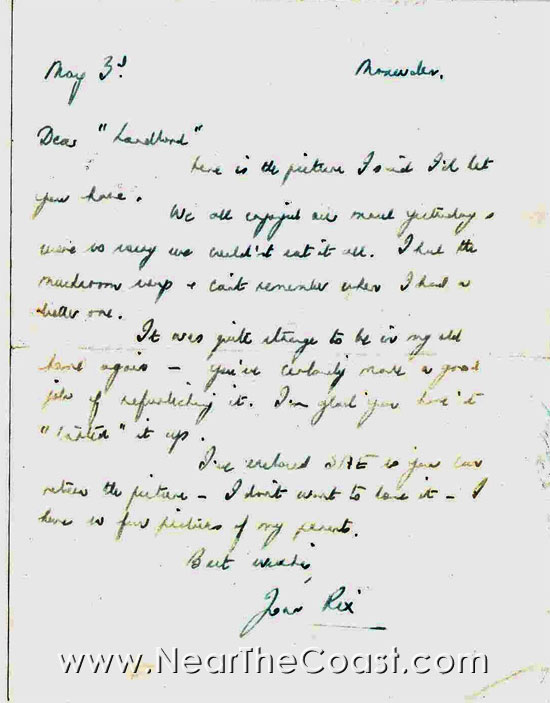 May 3rd.
Dear "Landlord"
Here is the picture I said I'd let
you have.
We all enjoyed our meal yesterday &
were so sorry we couldn't eat it all. I had the
mushroom soup & can't remember when I had a
better one.
It was quite strange to be in my old
home again – you've certainly made a good
job of refurbishing it. I'm glad you haven't
"tarted" it up.
I've enclosed SAE so you can
return the picture – I don't want to lose it – I
have so few pictures of my parents.
Best wishes,
Joan Rix
www.NearTheCoast.com